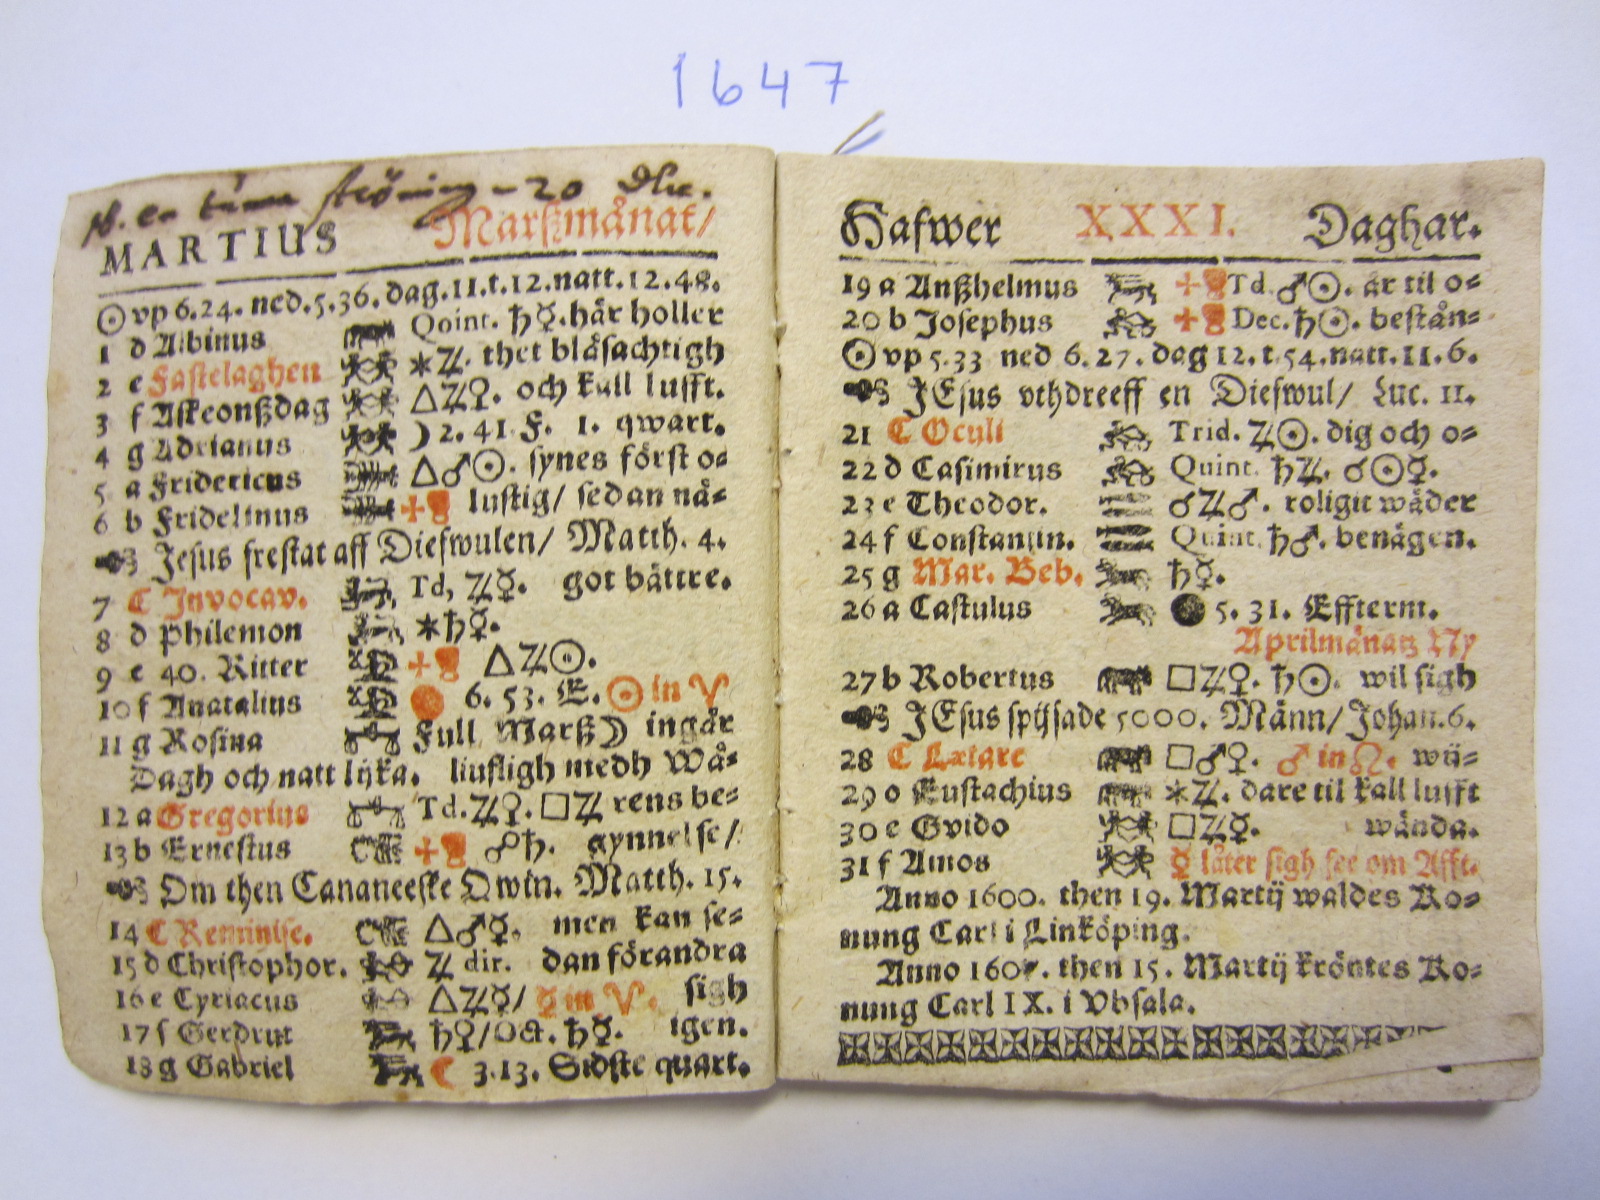 1647
20
MARTIUS Marßmånat/
☉ vp 6.24. ned. 5.36. dag. 11. t. 12. natt. 12.48.
1 d Albinus Quint. ♄☿. här holler
2 e Fastelaghen ✶♃. thet blåsachtigh
3 f Askeonßdag △♃♀. och kall lufft.
4 g Adrianus ☽ 2. 41. F. 1. qwart.
5 a Fridericus △♂☉. synes först o⸗
6 b Fridelinus lustig/ sedan nå⸗
☚ Jesus frestat aff Diefwulen/ Matth. 4.
7 C Invocav. Td, ♃☿. got bättre.
8 d Philemon ✶♄☿.
9 e 40. Ritter △♃☉.
10 f Anatalius 6. 53. E. ☉ in ♈
11 g Rosina Full Marß☽ ingår
Dagh och natt lijka. liufligh medh Wå⸗
12 a Gregorius Td. ♃♀. □♃ rens be⸗
13 b Ernestus ☍♄. gynnelse/
☚ Om then Cananeeske Qwin. Matth. 15.
14 C Reminise. △♂☿. men kan se⸗
15 d Christophor. ♃ dir. dan förandra
16 e Cyriacus △♃☿/ ☿ in ♈. sigh
17 f Gerdrut ♄♀/Oct. ♄☿. igen.
18 g Gabriel ☾ 3.13. Sidste quart.
Hafwer XXXI. Daghar.
19 a Anßhelmus Td. ♂☉. är til o⸗
20 b Josephus Dec. ♄☉. bestån⸗
☉ vp 5.33 ned 6.27. dag 12. t. 54. natt. 11. 6.
☚ JEsus vthdreeff en Diefwul/ Luc. 11.
21 C Oculi Trid. ♃☉. dig och o⸗
22 d Casimirus Quint. ♄♃. ☌☉☿.
23 e Theodor. ☌♃♂. roligit wäder
24 f Constantin. Quint. ♄♂. benägen.
25 g Mar. Beb. ♄☿.
26 a Castulus ● 5. 31. Effterm.
Aprilmånatz Ny
27 b Robertus □♃♀. ♄☉. wil sigh
☚ JEsus spijsade 5000. Männ/ Johan. 6.
28 C Lætare □♂♀. ♂ in ♌. wij⸗
29 d Eustachius ✶♃. dare til kall lufft
30 e Gvido □♃☿. wända.
31 f Amos ☿ låter sigh see om Afft.
Anno 1600. then 19. Martij waldes Ko⸗
nung Carl i Linköping.
Anno 1607. then 15. Martij kröntes Ko⸗
nung Carl IX. i Vbsala.